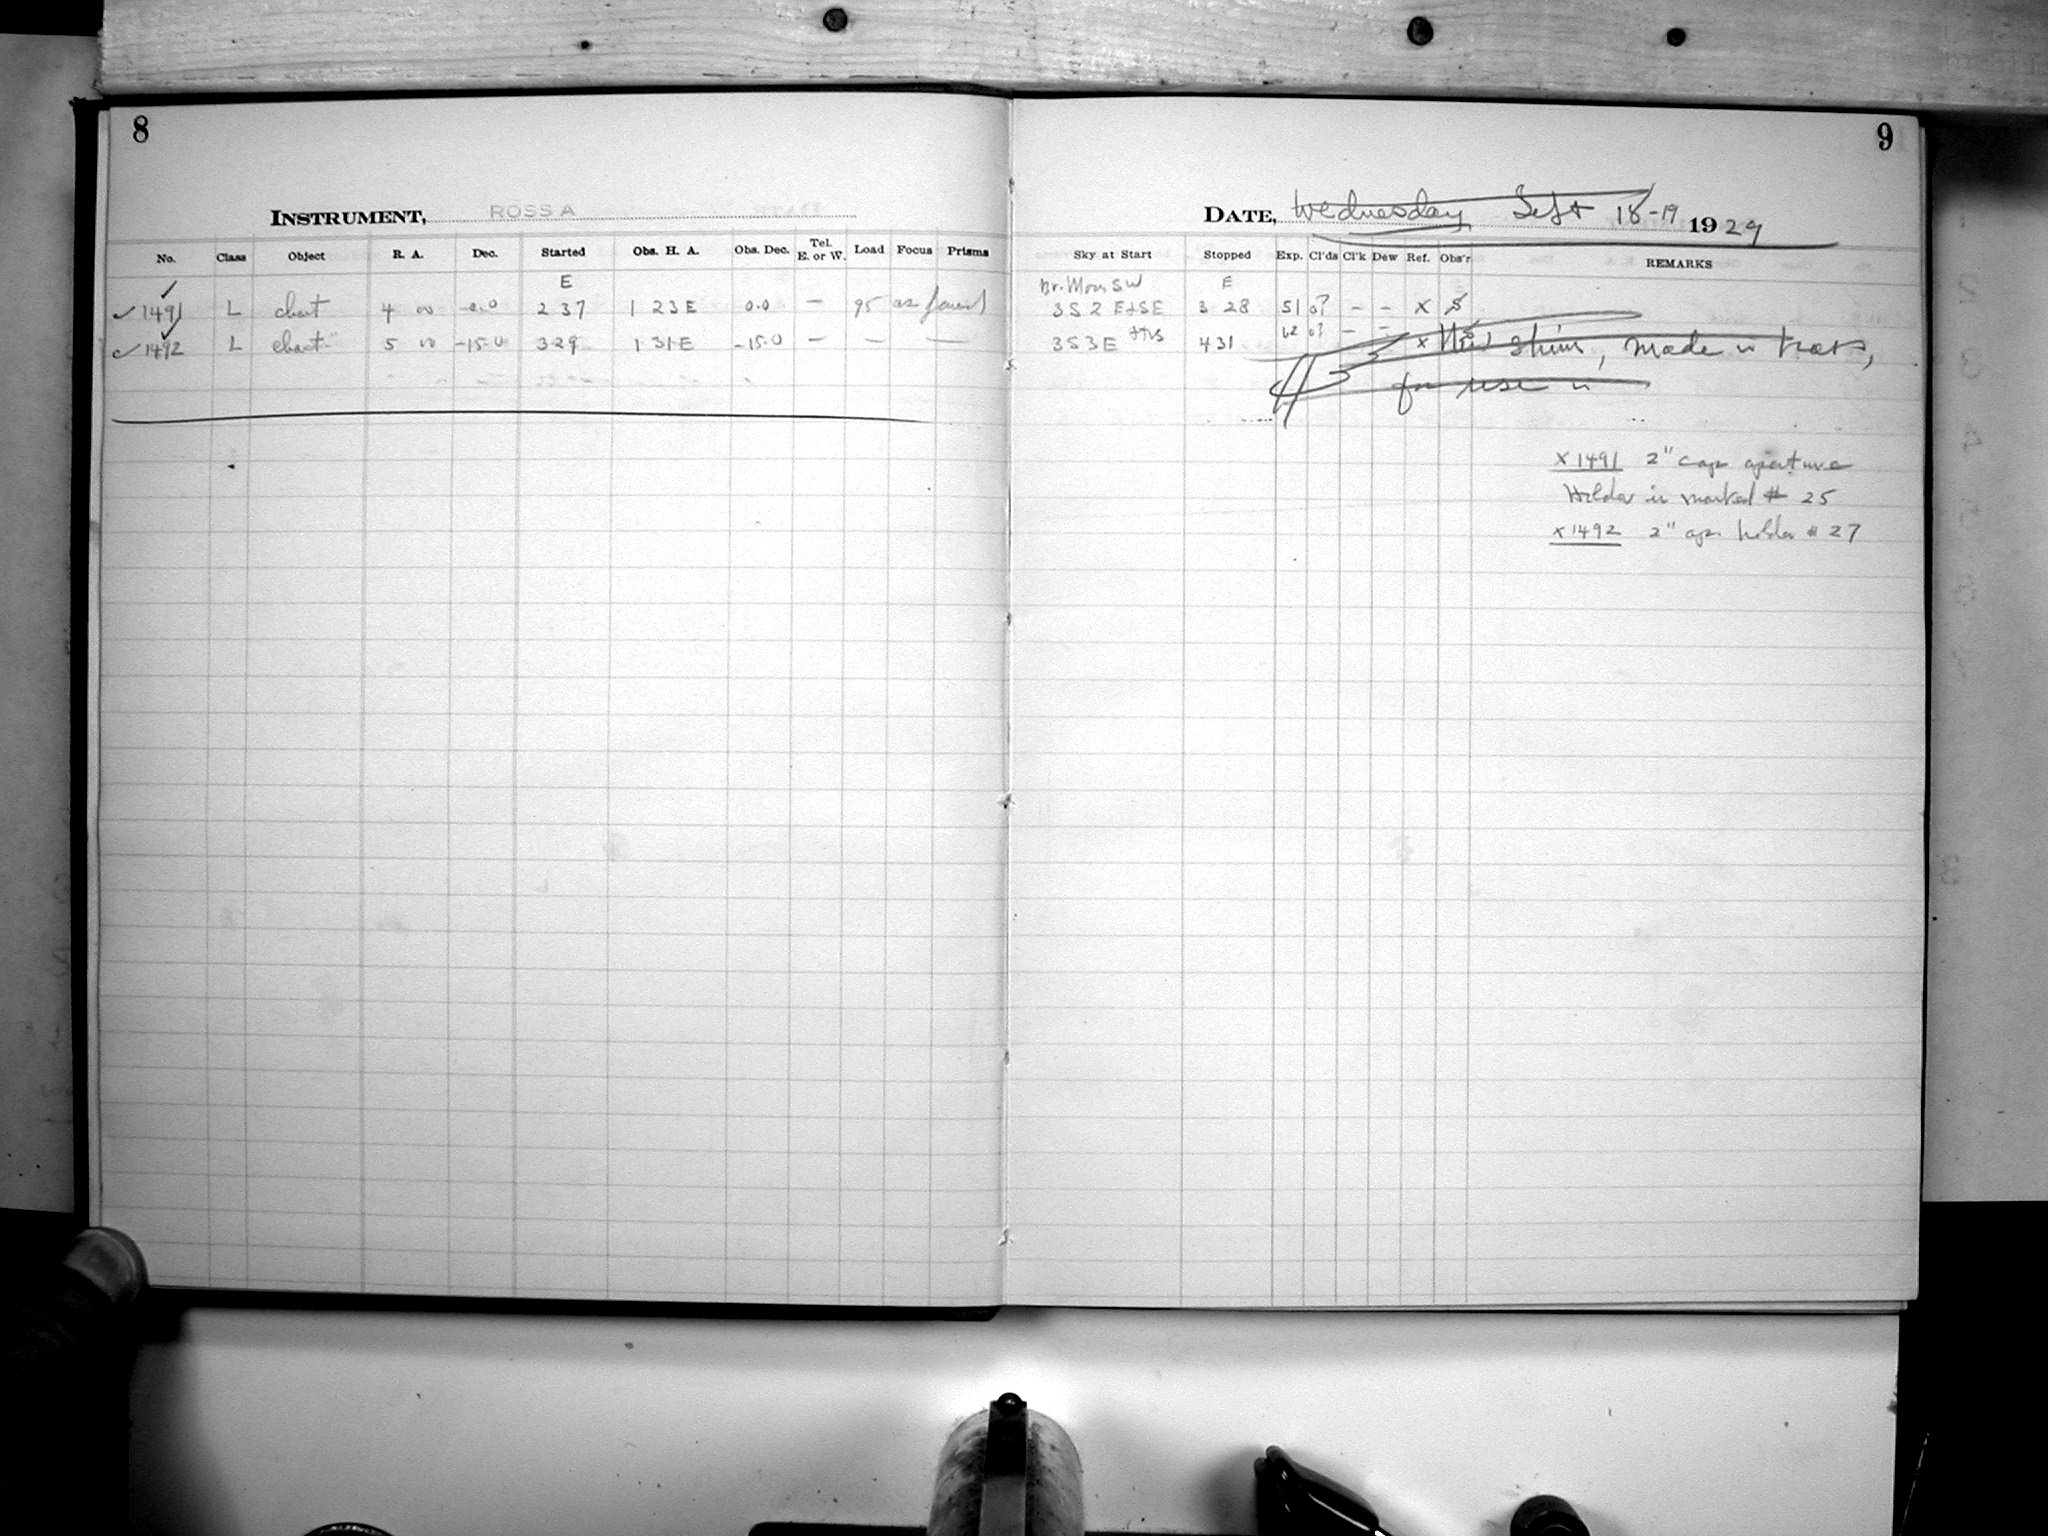 8
INSTRUMENT, ROSS A
No. Class Object R. A. Dec. Started Obs. H. A. Obs. Dec. Tel. E. or W. Load Focus Prisms
E
✓ 1491 L chart 4 00 0.0 2 37 1 23 E 0.0 — 95 as found
✓ 1492 L chart 5 00 -15.0 3 29 1 31 E -15.0 — — —
9
DATE, Wednesday Sept 18-19 1929
Sky at Start Stopped Exp. Cl'ds Cl'k Dew Ref. Obs'r REMARKS
Br. Moon SW E
3 S 2 E + SE 3 28 51 0? — — x
3 S 3 E 4 31 62 0? — — x shim, made
for use in
x 1491 2" cap aperture
Holder is marked # 25
x 1492 2" ap. holder # 27